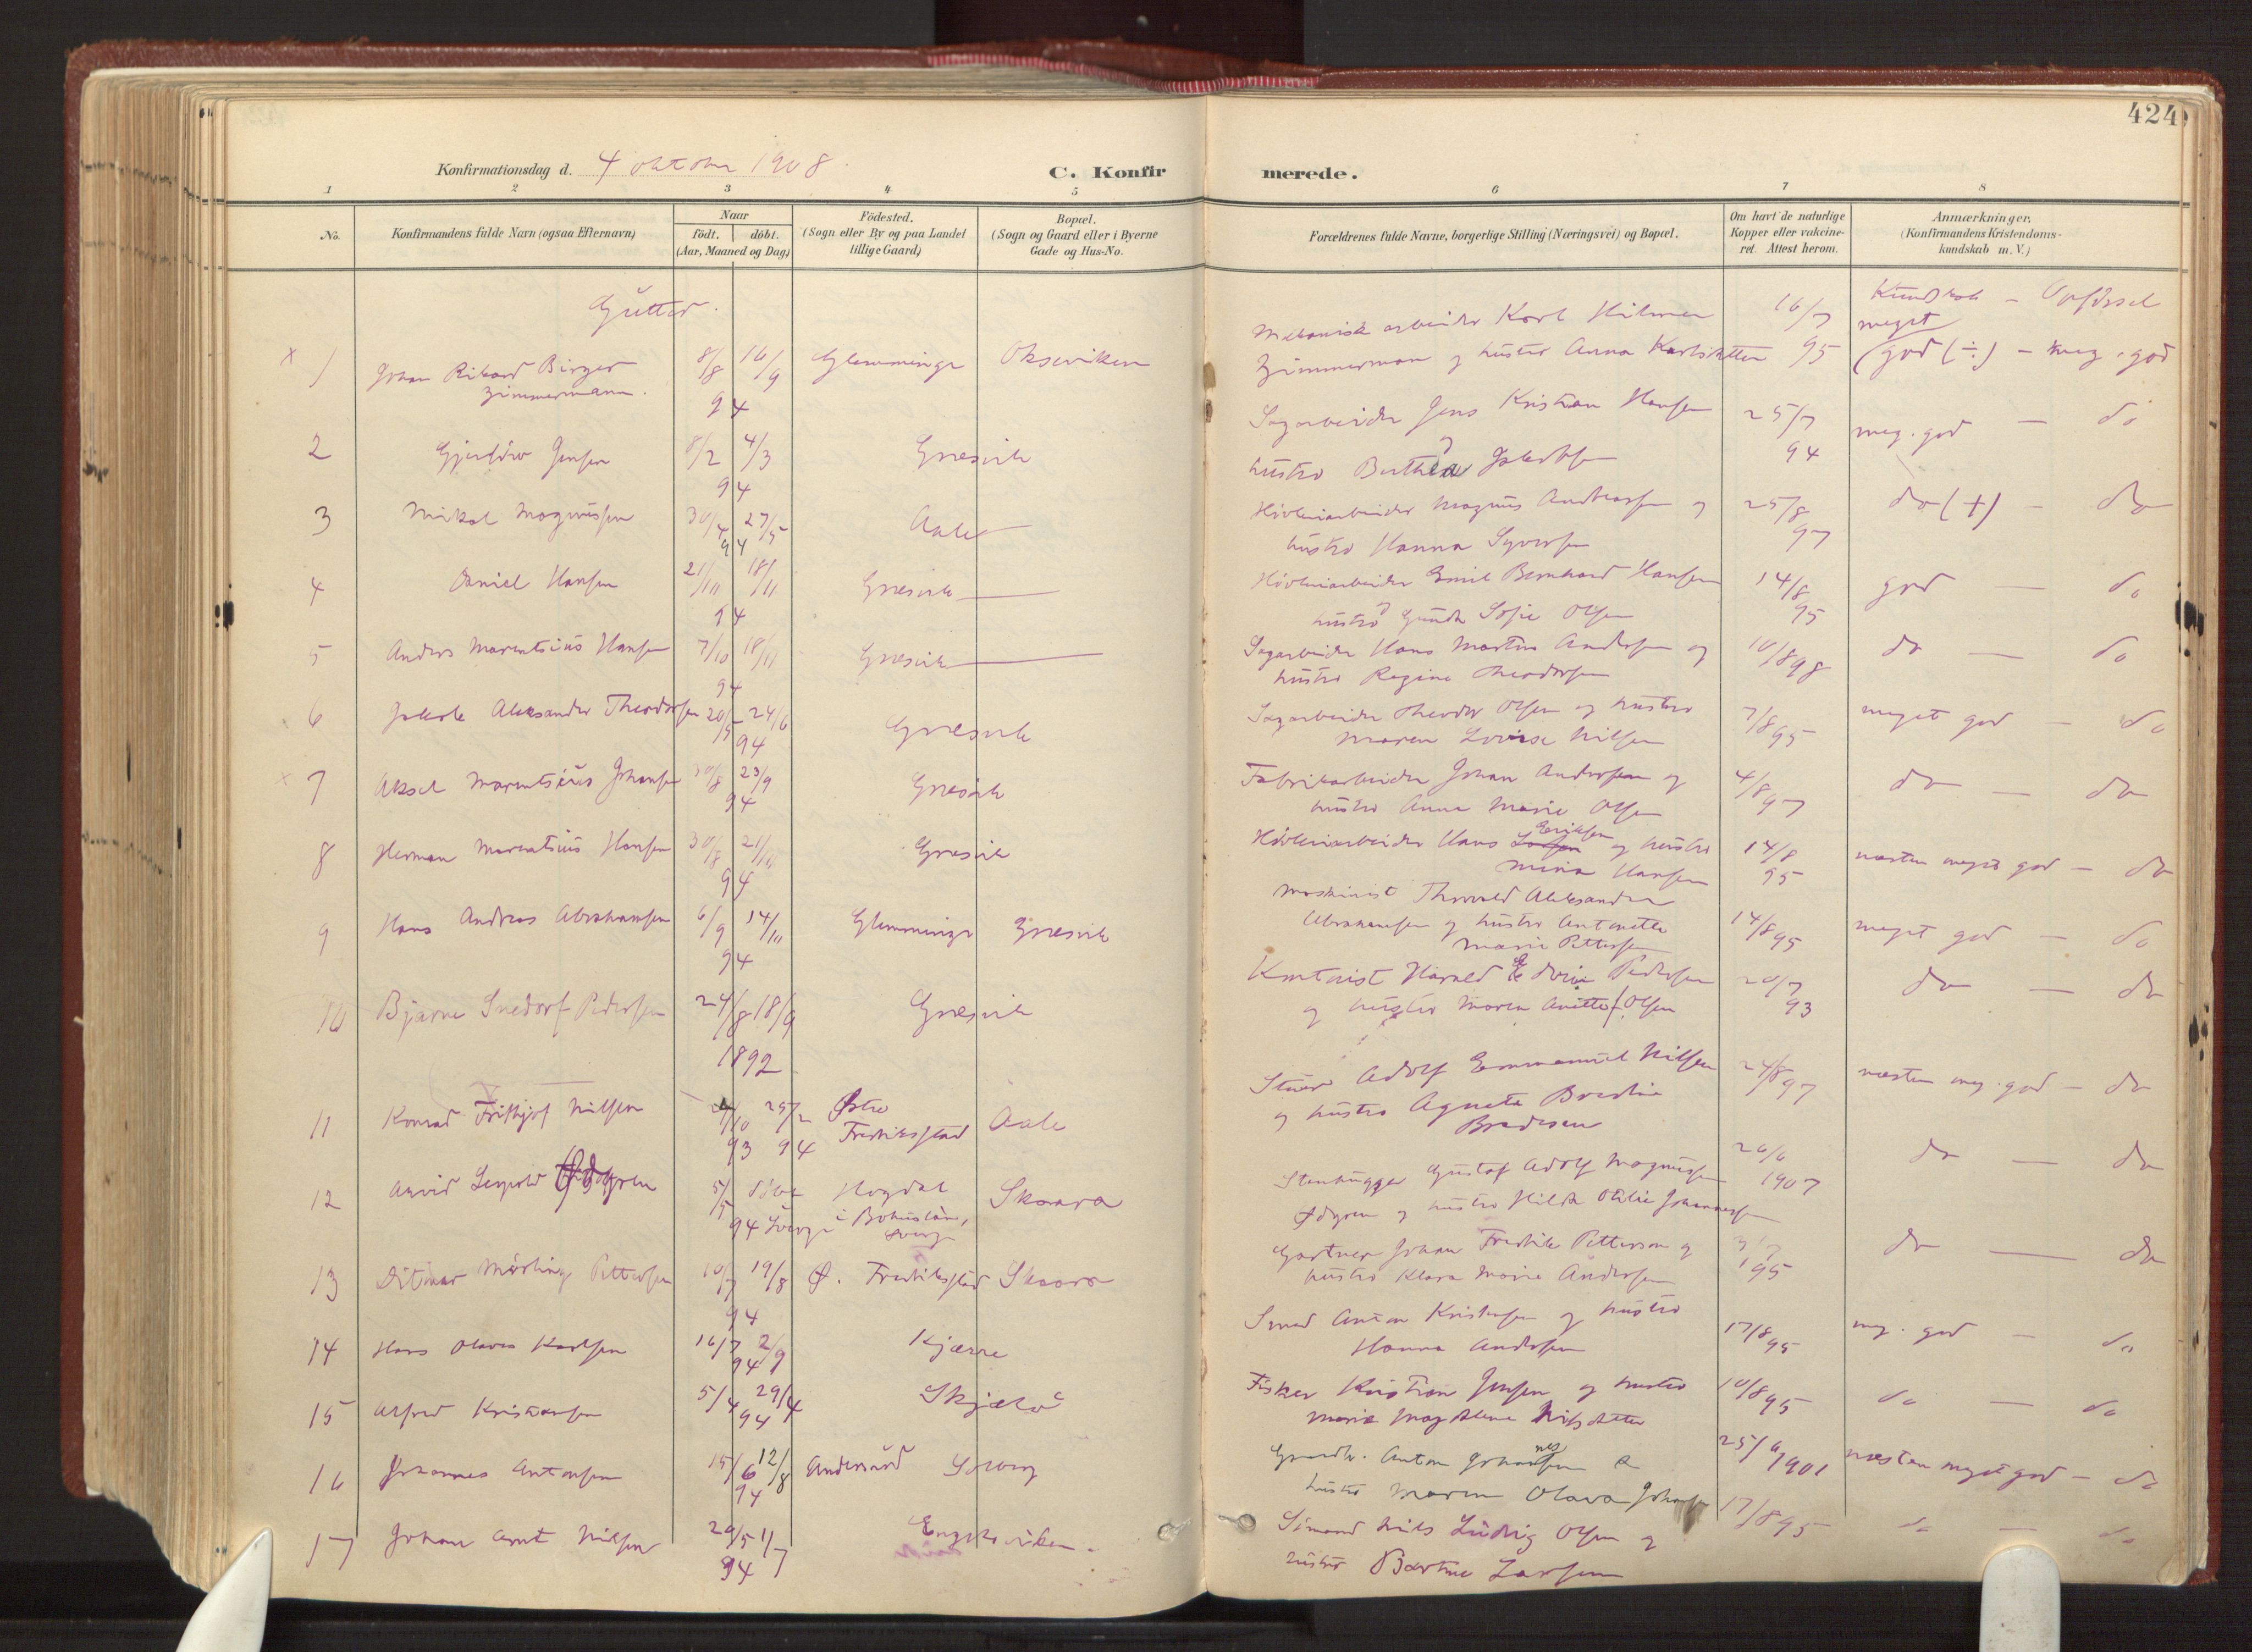 424
Konfirmationsdag d. 4 oktober 1908.
C. Konfirmerede.
1 2 3 4 5 6 7 8
No.
Konfirmandens fulde Navn (ogsaa Efternavn)
Naar
födt. döbt.
(Aar, Maaned og Dag)
Födested.
(Sogn eller By og paa Landet
tillige Gaard)
Bopæl.
(Sogn og Gaard eller i Byerne
Gade og Hus-No.
Forældrenes fulde Navne, borgerlige Stilling (Næringsvei) og Bopæl.
Om havt de naturlige
Kopper eller vakcine-
ret. Attest herom.
Anmærkninger.
(Konfirmandens Kristendoms-
kundskab m. V.)
Gutter.
Kundskab - Opførsel
x 1 Johan Rikard Birger
Zimmermann.
8/8 16/9
94
Glemminge Okseviken
Mekanisk arbeider Karl Hilmer
Zimmerman og hustro Anna Karlsdatter
16/7
95
meget
(god (÷) - meg. god
2 Jensen
8/2 4/3
94
Gresvik
Sagarbeider Jens Kristian Hansen
hustro Berthea Jakobsen
25/7
94
meg. god - do
3 Mikal Magnussen
30/4 27/5
94
Aale
Høvleriarbeider Magnus Andreassen og
hustro Hanna Syversen
25/8
97
do (+) - do
4 Daniel Hansen
21/10 18/11
94
Gresvik
Høvleriarbeider Emil Bernhard Hansen
hustro Gunda Sofie Olsen
14/8
95
god - do
5 Anders Marentsius Hansen
7/10 18/11
94
Gresvik
Sagarbeider Hans Martin Andersen og
hustro Regine Theodorsen
10/8 98
do - do
6 Jakob Aleksander Theodorsen
20/5 24/6
94
Gresvik
Sagarbeider Theodor Olsen og hustro
Maren Lovise Nilsen
7/8 95
meget god - do
x 7 Aksel Marentsius Johansen
30/8 23/9
94
Gresvik
Fabrikarbeider Johan Andersen og
hustro Anna Marie Olsen
4/8 97
do - do
8 Herman Marentsius Hansen
30/8 21/11
94
Gresvik
Høvleriarbeider Hans Eriksen og hustro
Mina Hansen
14/8
95
næsten meget god - do
9 Hans Andreas Abrahamsen
6/9 14/11
94
Glemminge Gresvik
Maskinist Thorvald Aleksander
Abrahamsen og hustro Antonette
Marie Pettersen
14/8 95
meget god - do
10 Bjarne Snedorf Pedersen
24/8 18/9
1892
Gresvik
Kontorist Harald Edvin Pedersen
og hustro Maren Anette Olsen
20/7
93
do - do
11 Konrad Frithjof Nilsen
4/10 25/2
93 94
Østre
Fredriksstad
Aale
Stuer Adolf Emmanuel Nilsen
og hustro Agneta Bredine
Bredesen
24/8 97
næsten meg. god - do
12 Arvid Leopold Ødgren
5/5 döbt
94 Sverge
Hogdal
i Bohuslän,
Sverge
Skaara
Stenhugger Gustaf Adolf Magnussen
Ødgren og hustro Hilda Otilie Johannessen
26/6
1907
do - do
13 Ditmar Mørling Pettersen
10/7 19/8
94
Ø. Fredriksstad Skaara
Gartner Johan Fredrik Petterson og
hustro Klara Marie Andersen
95
do - do
14 Hans Olaves Karlsen
16/7 2/9
94
Kjærre
Smed Anton Kristensen og hustro
Hanna Andersen
17/8 95
meg. god - do
15 Alfred Kristiansen
5/4 29/4
94
Skjælø
Fisker Kristian Jensen og hustro
Marie Magdalene Nilsdatter
10/8 95
do - do
16 Johannes Antonsen
15/6 12/8
94
Gaardbr. Anton Johannessen &
hustro Maren Olava Johansen
25/6 1901
næsten meget god - do
17 Johan Arnt Nilsen
29/5 1/7
94
Engelsviken
Sömand Nils Ludvig Olsen og
hustro Bertine Larsen
17/8 95
do - do